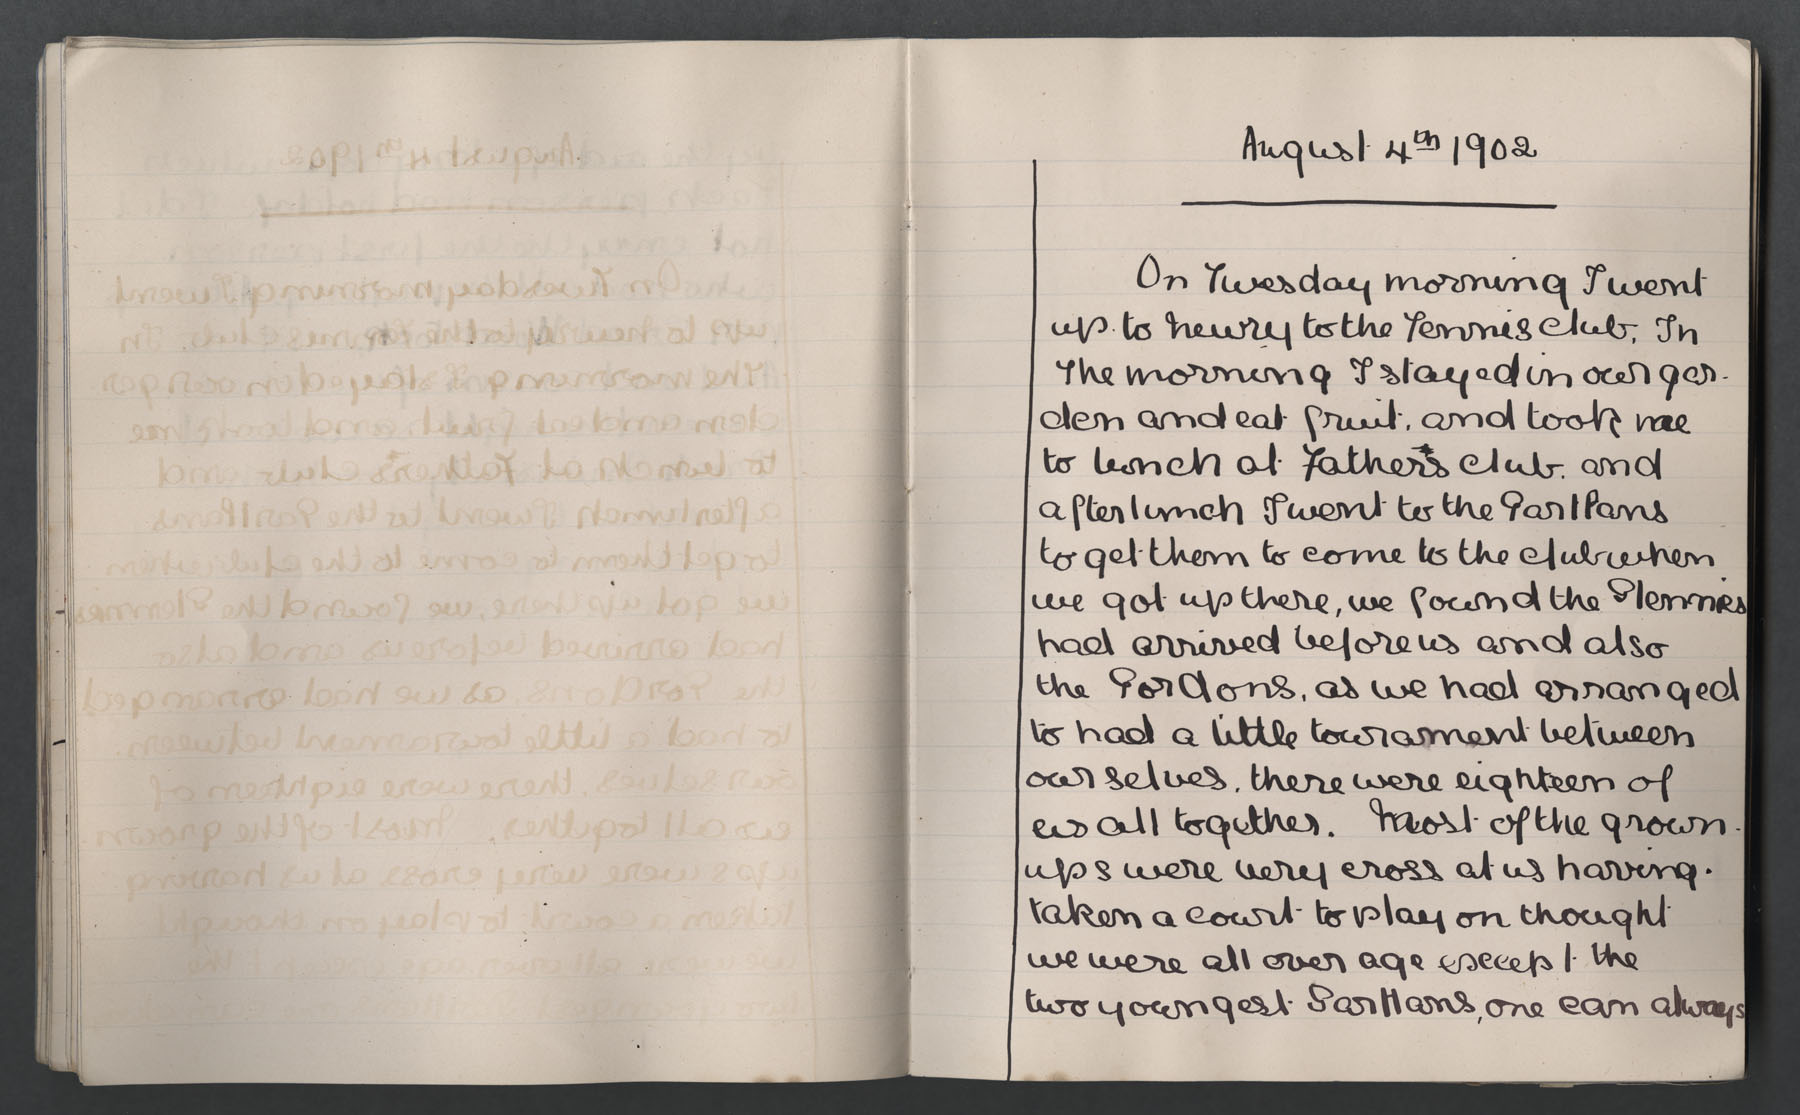 August 4th 1902
On Tuesday morning I went
up to Newry to the Tennis club, In
the morning I stayed in our gar-
den and eat fruit, and took me
to lunch at Father's club. and
after lunch I went to the
to get them to come to the club when
we got up there, we found the Glennies
had arrived before us and also
the Gordons, as we had arranged
to had a little tournament between
ourselves, there were eighteen of
us all together. Most of the grown-
ups were very cross at us having
taken a court to play on thought
we were all over age except the
two youngest, one can always